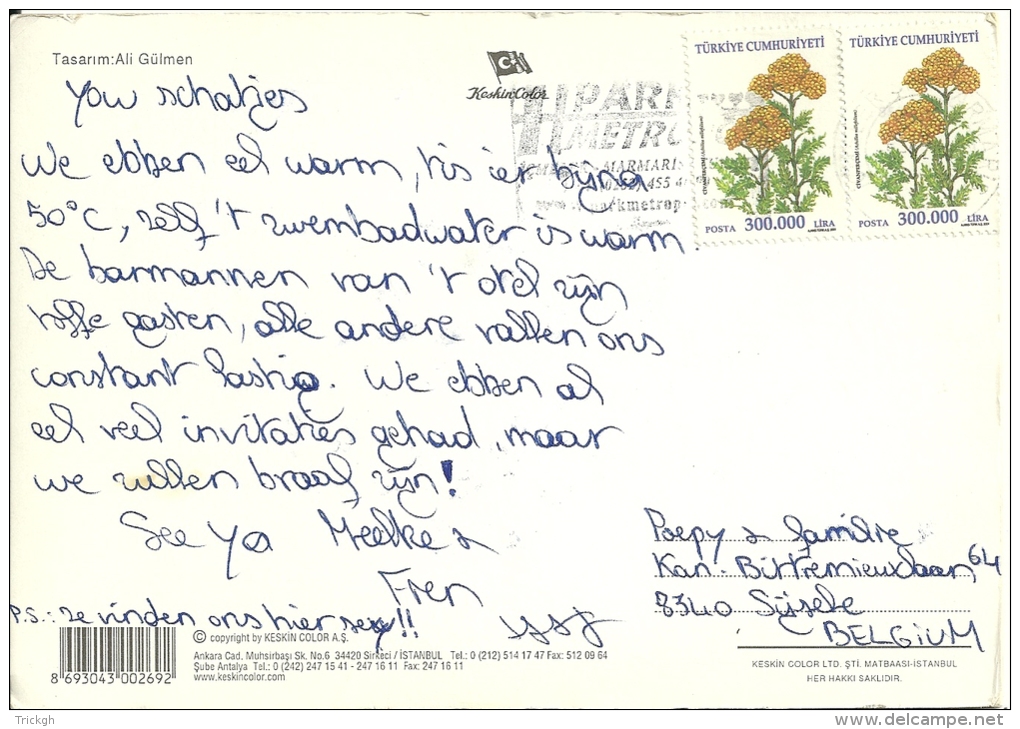 Tasarım:Ali Gülmen
KeskinColor
PARK
METRO
MARMARİ
455 4
TÜRKİYE CUMHURİYETİ
POSTA 300.000 LİRA
TÜRKİYE CUMHURİYETİ
POSTA 300.000 LİRA
Yow schatjes
We ebben eel warm, 't is ier bijna
50°C, zelf 't zwembadwater is warm
De barmannen van 't otel zijn
toffe gasten, alle andere vallen ons
constant lastig. We ebben al
eel veel invitaties gehad, maar
we zullen braaf zijn!
See ya Meelke &
Fren
P.S.: ze vinden ons hier sexy!!
Poepy & familie
Kan. Bittremieuxlaan 64
8340 Sijsele
BELGIUM
8 693043 002692
© copyright by KESKİN COLOR A.Ş.
Ankara Cad. Muhsirbaşı Sk. No.6 34420 Sirkeci / İSTANBUL Tel.: 0 (212) 514 17 47 Fax: 512 09 64
Şube Antalya Tel.: 0 (242) 247 15 41 - 247 16 11 Fax: 247 16 11
www.keskincolor.com
KESKİN COLOR LTD. ŞTİ. MATBAASI-İSTANBUL
HER HAKKI SAKLIDIR.
Trickgh
delcampe.net